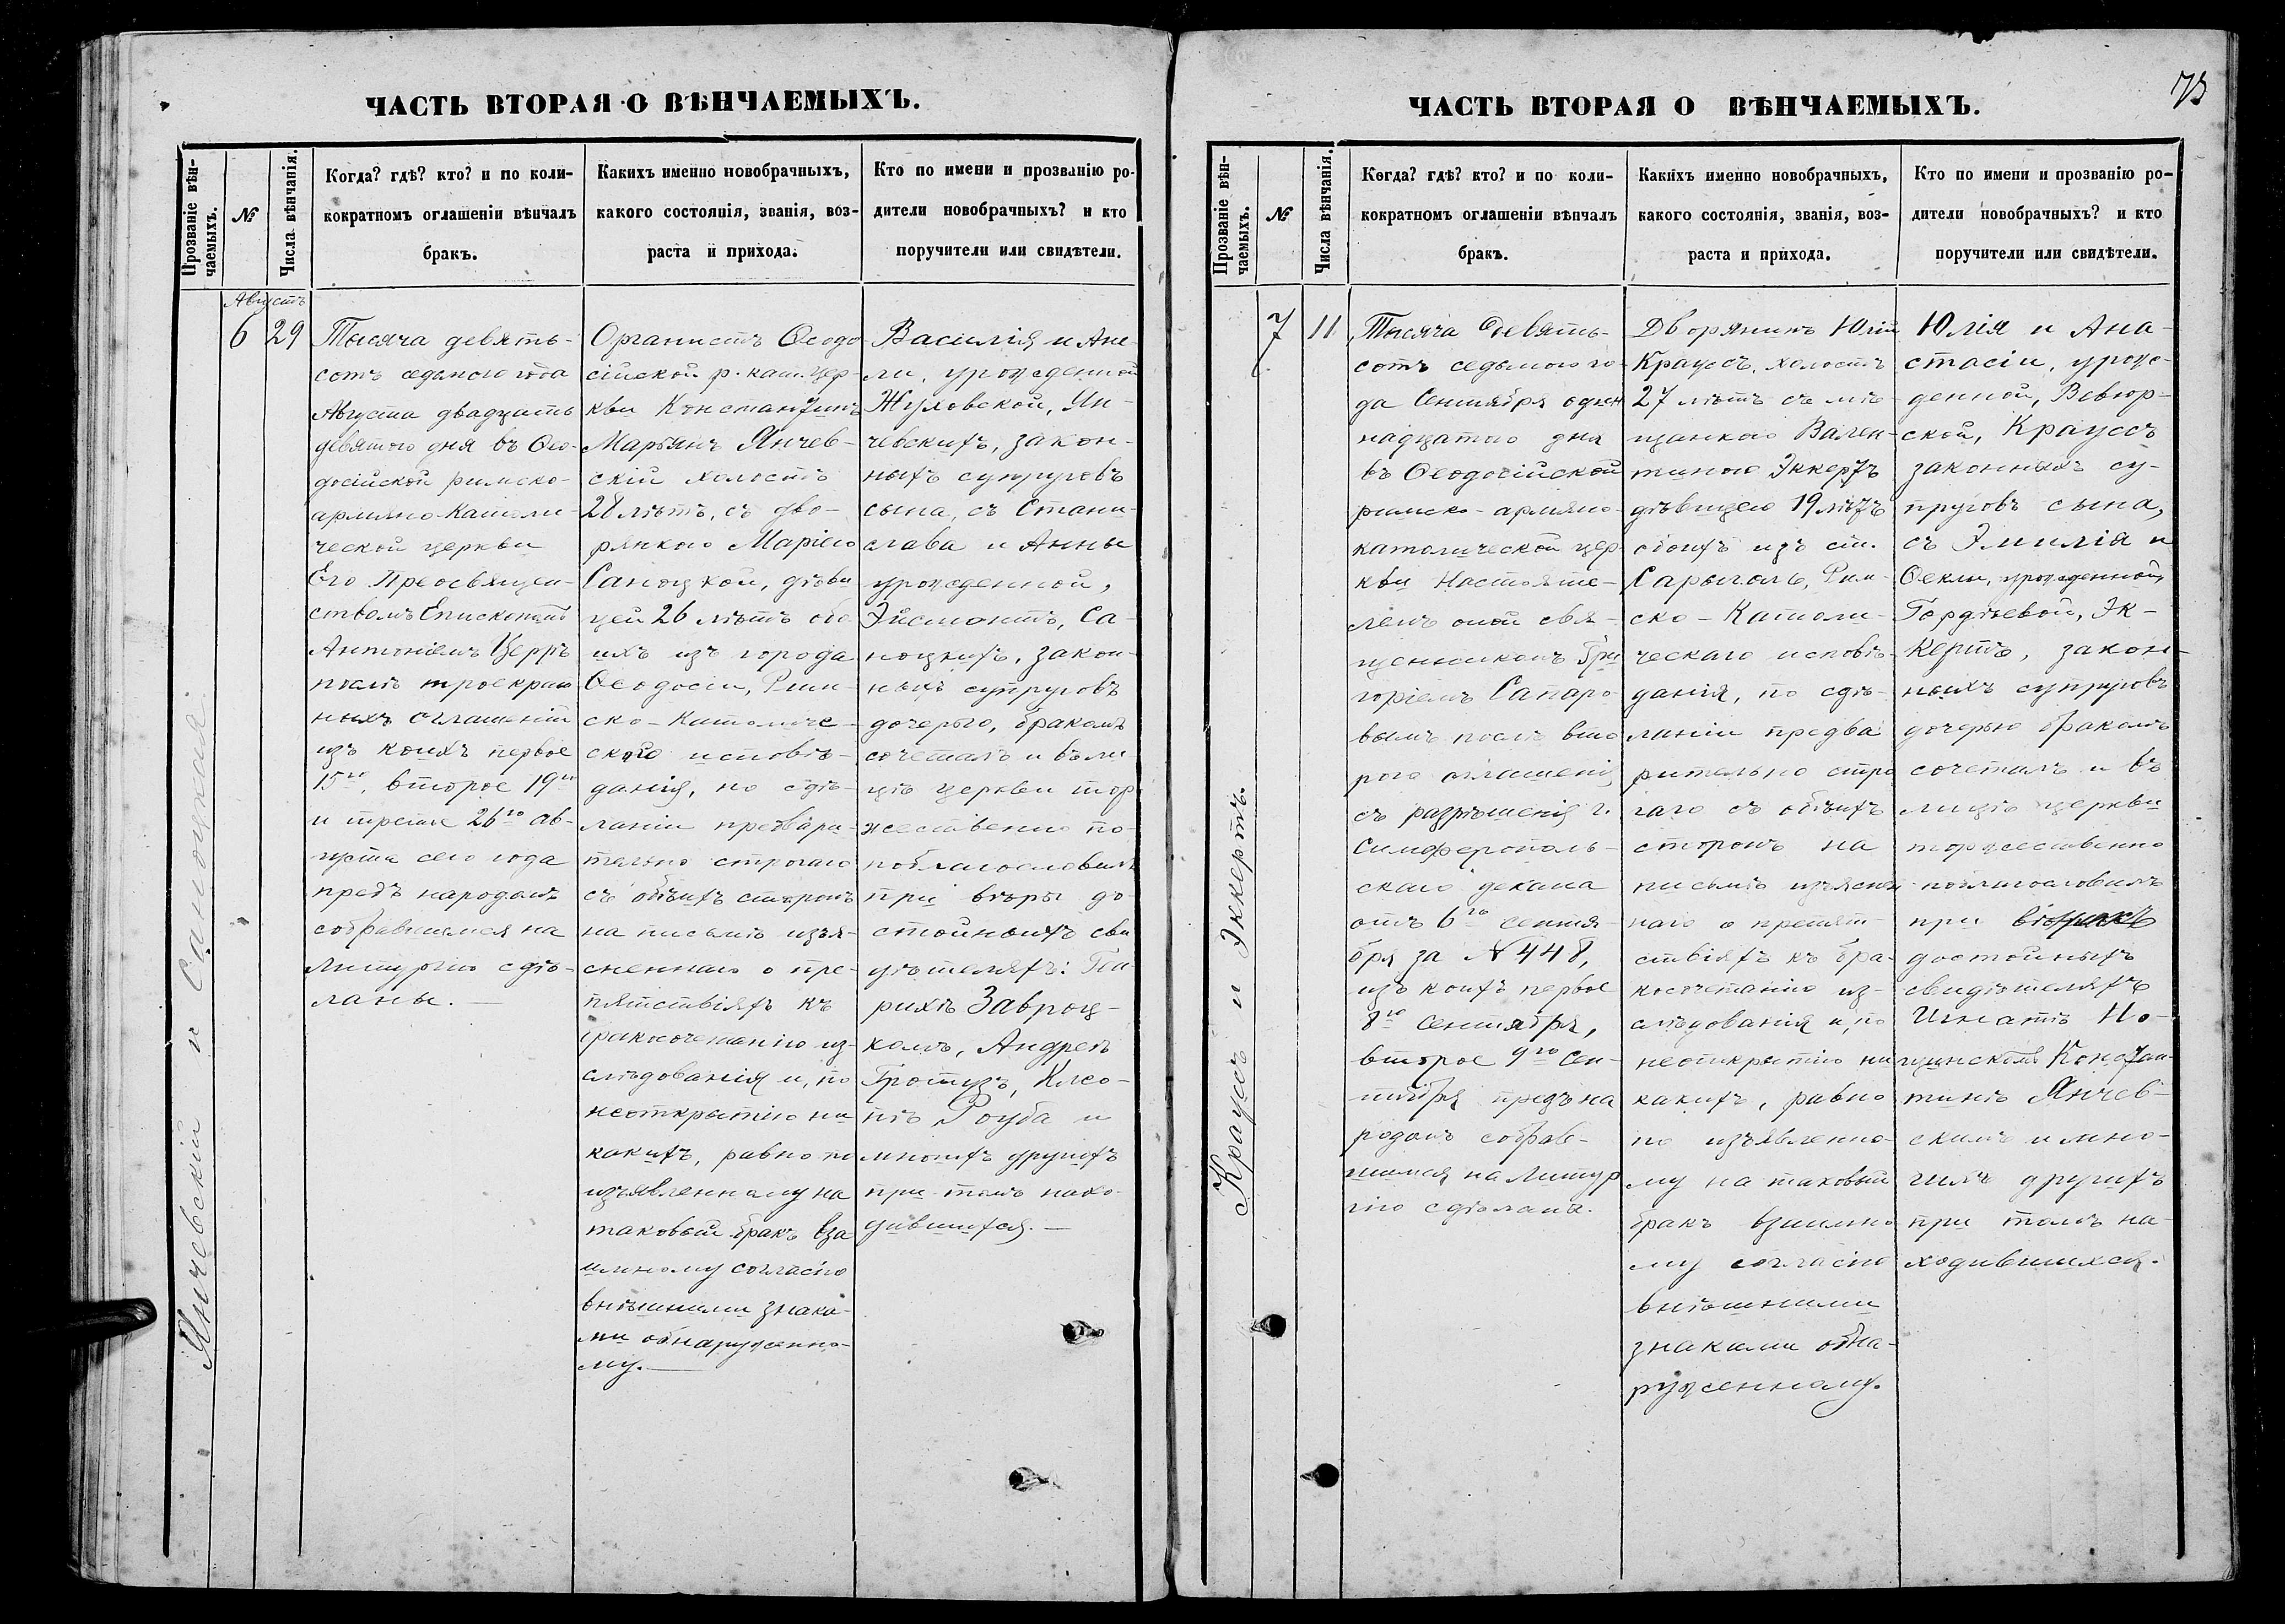 73
ЧАСТЬ ВТОРАЯ О ВѢНЧАЕМЫХЪ.
Прозваніе вѣн-
чаемыхъ.
№
Числа вѣнчанія.
Когда? гдѣ? кто? и по коли-
кократномъ оглашеніи вѣнчалъ
бракъ.
Какихъ именно новобрачныхъ,
какого состоянія, званія, воз-
раста и прихода.
Кто по имени и прозванію ро-
дители новобрачныхъ? и кто
поручители или свидѣтели.
Янчевскій и Саноцкая.
Августъ
6
29
Тысяча девять-
сотъ седьмого года
Августа двадцать
девятого дня въ Ѳео-
досійской римско-
армяно-Католи-
ческой церкви
Его Преосвящен-
ствомъ Епископомъ
Антоніемъ Церръ
послѣ троекрат
ныхъ оглашеній
изъ коихъ первое
15го, второе 19го
и третье 26го ав-
густа сего года
предъ народомъ
собравшимся на
Литургію сдѣ-
ланы.
Органистъ Ѳеодо
сійской р. кат. цер-
кви Константинъ
Марьянъ Янчев-
скій холостъ
28 лѣтъ, съ дво-
рянкою Маріею
Саноцкой, дѣви
цей 26 лѣтъ обо
ихъ изъ города
Ѳеодосіи, Рим-
ско-Католиче-
скаго исповѣ-
данія, по сдѣ-
ланіи предвари-
тельно строгаго
съ обѣихъ сторонъ
на письмѣ изъя-
сненнаго о пре-
пятствіяхъ къ
бракосочетанію из-
слѣдованія и, по
неоткрытію ни
какихъ, равно по
изъявленному на
таковый бракъ вза
имному согласію
внѣшними знака-
ми обнаруженно-
му.
Василія и Ане-
ли, урожденной
Жуховской, Ян-
чевскихъ, закон-
ныхъ супруговъ
сына, съ Стани-
слава и Анны
урожденной,
Эйсмонтъ, Са-
ноцкихъ, закон-
ныхъ супруговъ
дочерью, бракомъ
сочеталъ и въ ли
цѣ церкви тор
жественно по-
поблагословилъ
при вѣры до-
стойныхъ сви
дѣтеляхъ: Ген
рихѣ Завроц-
комъ, Андреѣ
Гротузъ, Клео-
пѣ Роуба и
многихъ другихъ
при томъ нахо-
дившихся.
ЧАСТЬ ВТОРАЯ О ВѢНЧАЕМЫХЪ.
Прозваніе вѣн-
чаемыхъ.
№
Числа вѣнчанія.
Когда? гдѣ? кто? и по коли-
кократномъ оглашеніи вѣнчалъ
бракъ.
Какихъ именно новобрачныхъ,
какого состоянія, званія, воз-
раста и прихода.
Кто по имени и прозванію ро-
дители новобрачныхъ? и кто
поручители или свидѣтели.
Крауссъ и Эккертъ.
7
11
Тысяча девять-
сотъ седьмого го-
да Сентября один
надцатого дня
въ Ѳеодосійской
римско-армяно-
католической цер-
кви Настояте-
лемъ оной свя-
щенникомъ Гри
горіемъ Сапаро
вымъ послѣ вто
рого оглашенія
съ разрѣшенія г.
Симферополь-
скаго декана
отъ 6го сентя-
бря за N 448,
изъ коихъ первое
8го Сентября,
второе 9го Сен-
тября предъ на
родомъ собрав-
шимся на Литур
гію сдѣланы.
Дворянинъ Юлій
Крауссъ, холостъ
27 лѣтъ съ мѣ-
щанкою Вален-
тиною Эккертъ
дѣвицею 19 лѣтъ
обоихъ изъ ст.
Сарыголь, Рим-
ско-Католи-
ческаго исповѣ-
данія, по сдѣ-
ланіи предва-
рительно стро
гаго съ обѣихъ
сторонъ на
письмѣ изъяснен
наго о препят-
ствіяхъ къ бра-
косочетанію из-
слѣдованія и, по
неоткрытію ни
какихъ, равно
по изъявленно-
му на таковый
бракъ взаимно
му согласію
внѣшними
знаками обна-
руженному.
Юлія и Ана-
стасіи, урож-
денной, Вевюр-
ской, Крауссъ
законныхъ су-
пруговъ сына,
съ Эмилія и
Ѳеклы, урожденной
Гордѣевой, Эк-
кертъ, закон-
ныхъ супруговъ
дочерью бракомъ
сочеталъ и въ
лицѣ церкви
торжественно
поблагословилъ
при вѣры
достойныхъ
свидѣтеляхъ
Игнатѣ Но-
Констан-
тинѣ Янчев-
скимъ и мно-
гихъ другихъ
при томъ на-
ходившихся.